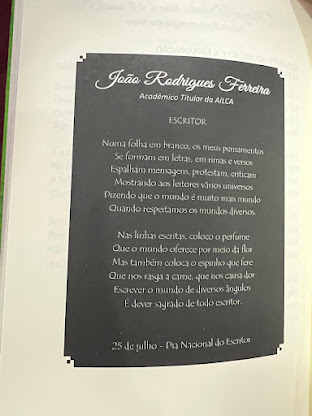 João Rodrigues Ferreira
Acadêmico Titular da AILCA
ESCRITOR
Numa folha em branco, os meus pensamentos
Se formam em letras, em rimas e versos
Espalham mensagens, protestam, criticam
Mostrando aos leitores vários universos
Dizendo que o mundo é muito mais mundo
Quando respeitamos os mundos diversos.
Nas linhas escritas, coloco o perfume
Que o mundo oferece por meio da flor
Mas também coloca o espinho que fere
Que nos rasga a carne, que nos causa dor
Escrever o mundo de diversos ângulos
É dever sagrado de todo escritor.
25 de julho - Dia Nacional do Escritor